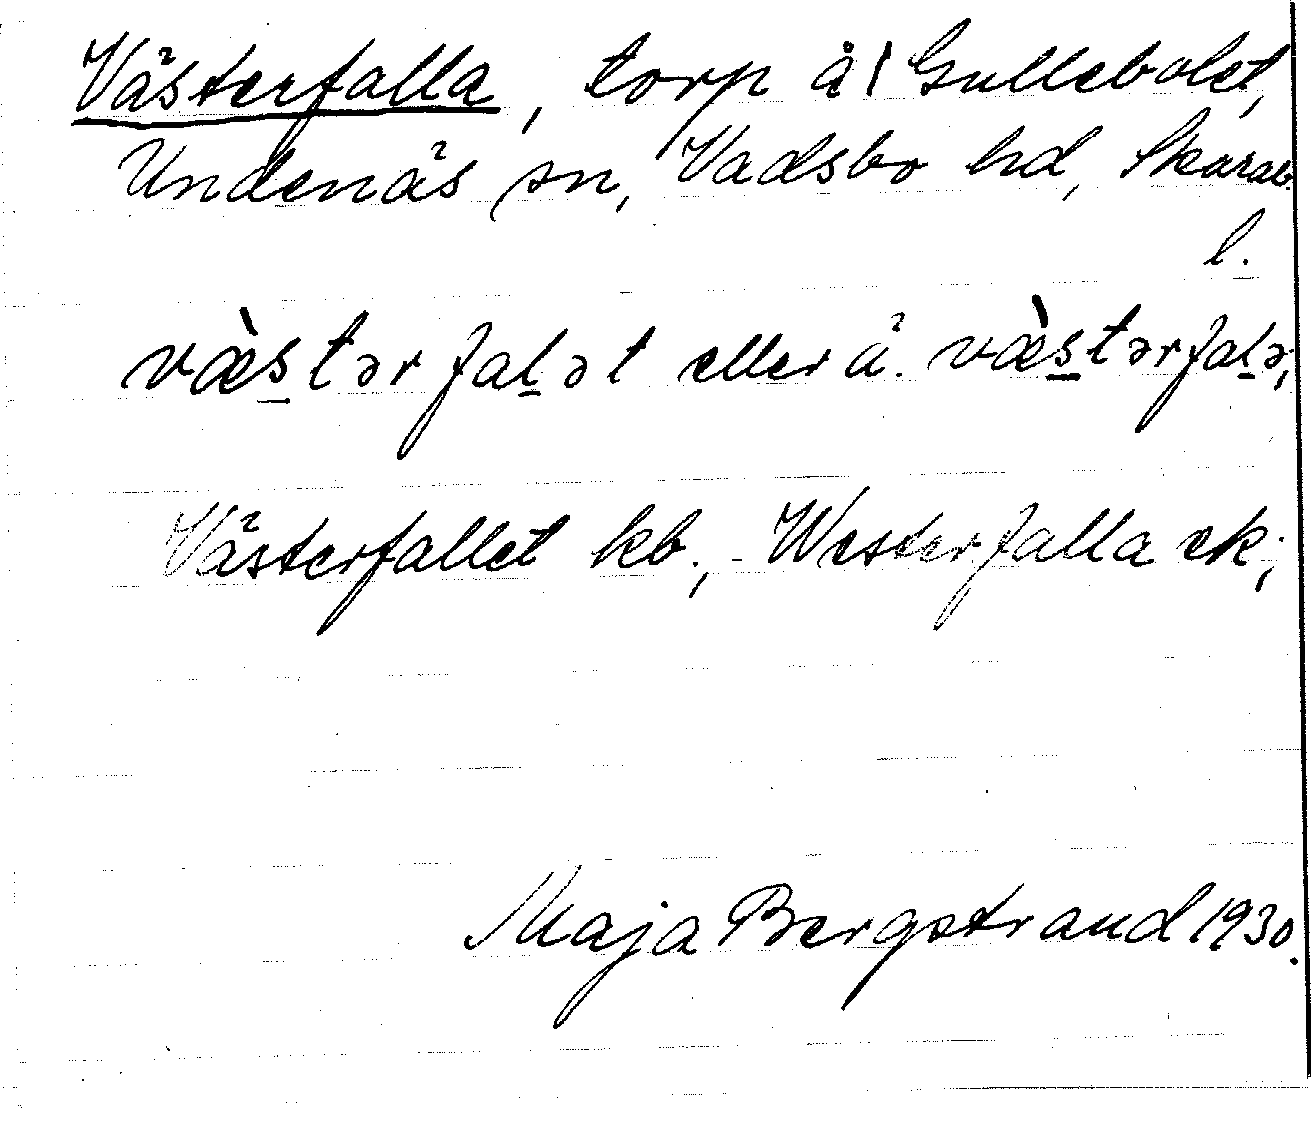 Västerfalla, torp å Gullebolet,
Undenäs sn, Vadsbo hd, Skarab.
l.
væ̀s̲tərfal̲ət eller å. væ̀s̲tərfal̲ə,
Västerfallet kb., - Westerfalla ek;
Maja Bergstrand 1930.